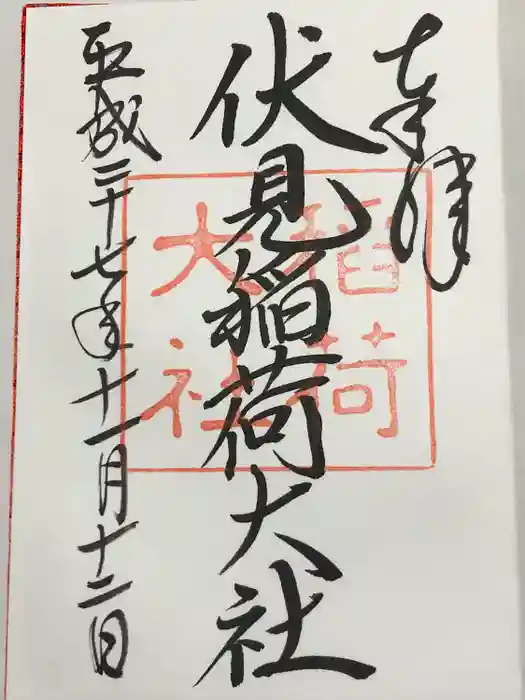 奉拝
伏見稲荷大社
稲荷
大社
平成二十七年十一月十二日